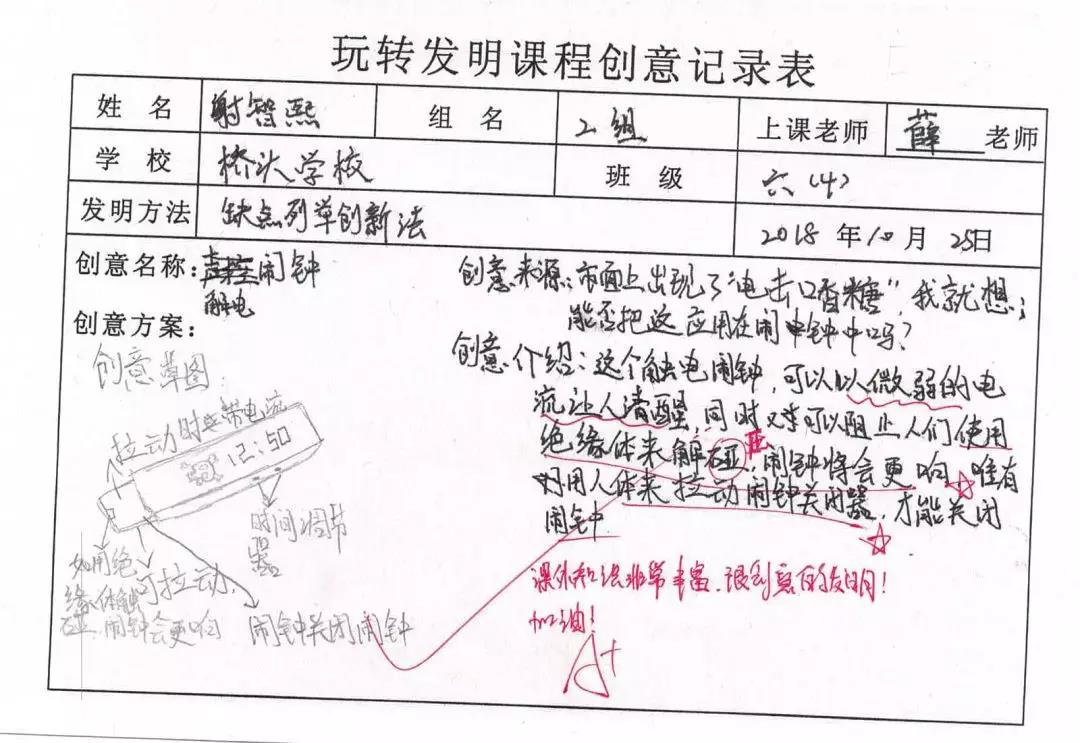 玩转发明课程创意记录表
姓 名 射智熙 组 名 2组 上课老师 薛 老师
学 校 桥头学校 班 级 六(4)
发明方法 缺点列举创新法 2018 年 10 月 25日
创意名称: 闹钟
触电
创意来源:市面上出现了"电击口香糖",我就想;
能否把这应用在闹钟中吗?
创意方案:
创意介绍:这个触电闹钟,可以以微弱的电
流让人清醒,同时又可以阻止人们使用
绝缘体来触碰,闹钟将会更响,唯有
用人体来拉动闹钟关闭器,才能关闭
闹钟.
创意草图:
拉动时带电流
12:50
时间调节器
如用绝
缘体触
碰,闹钟会更响
可拉动.
闹钟关闭闹钟
课外知识非常丰富,很创意的发明!
加油!
A+